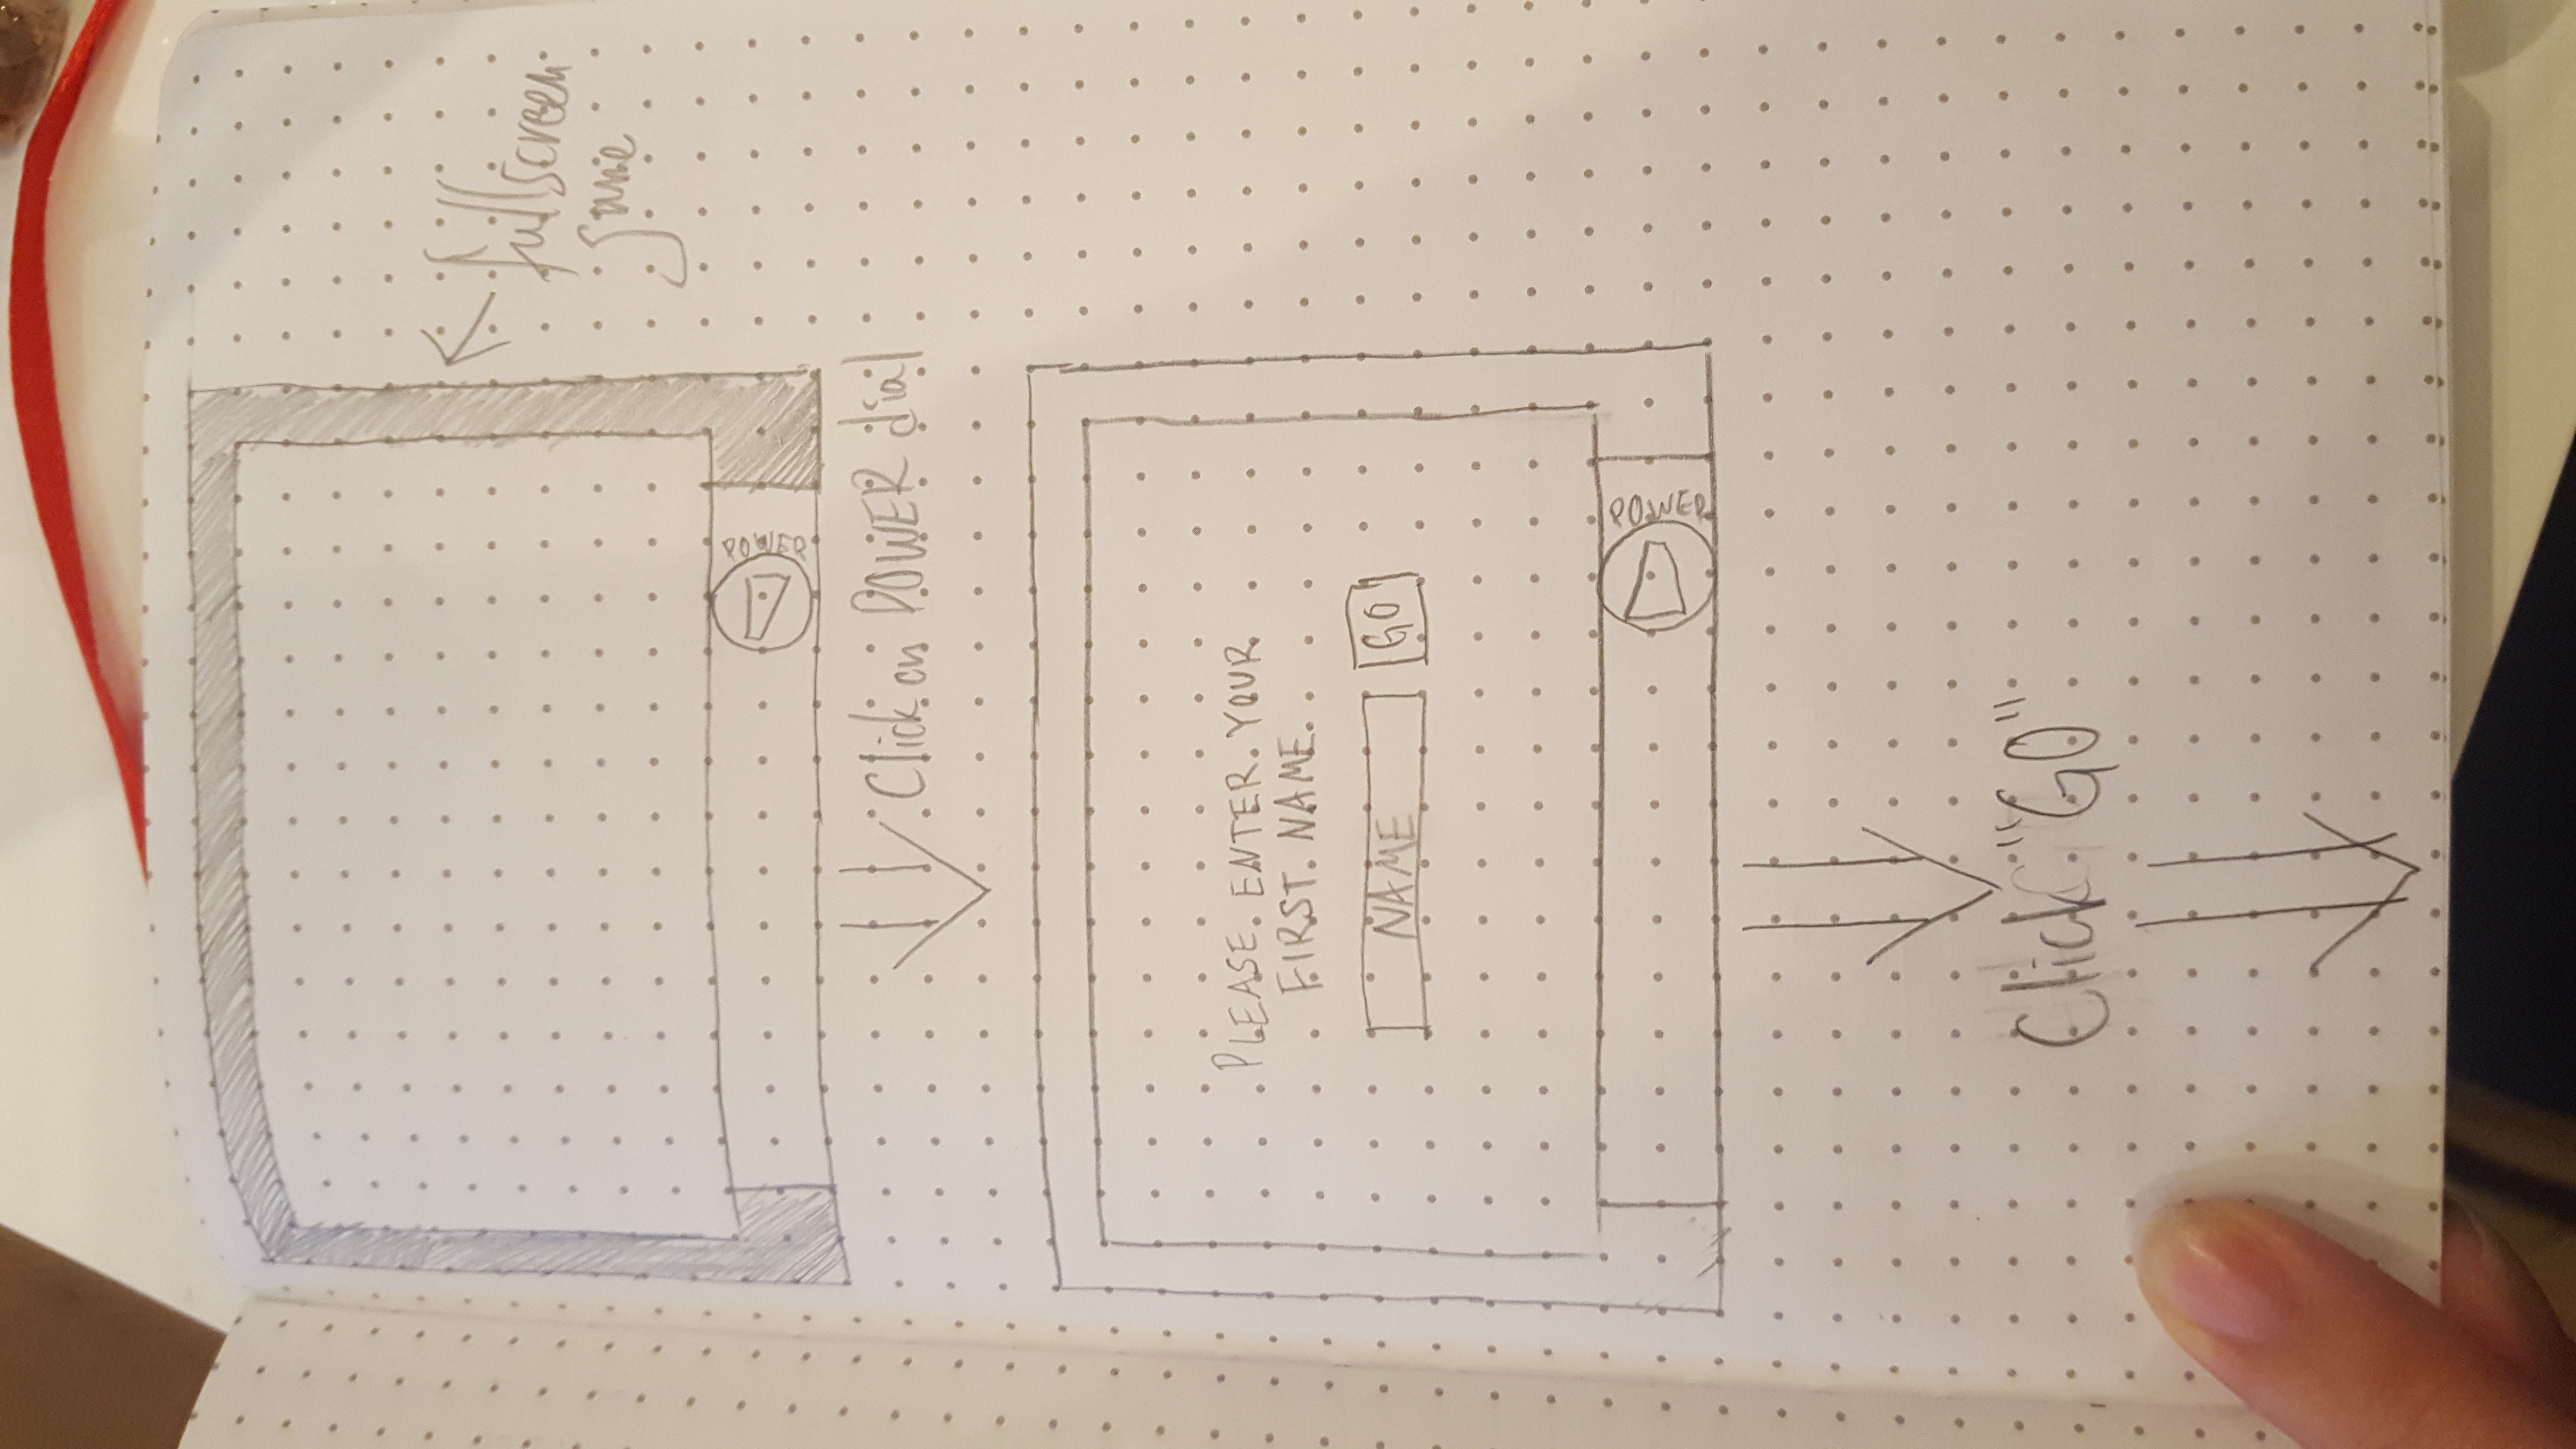 fullscreen
game
POWER
Click on POWER dial
PLEASE ENTER YOUR
FIRST NAME.
NAME
GO
POWER
Click "GO"